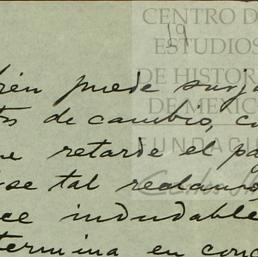 CENTRO D
ESTUDIOS
DE HISTOR
DE MEXIC
FUNDACI
19
bién puede surj
tos de cambio, c
ue retarde el pa
se tal reclamo,
ce indudable
termina en conc